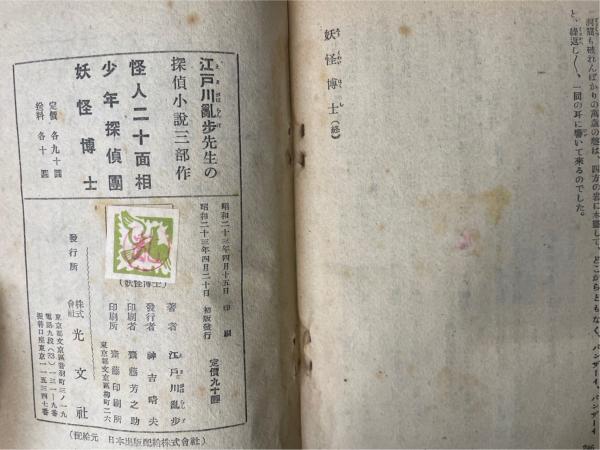 洞窟も破れんばかりの萬歳の聲は、四方の岩に木魂して、どこからともなく、バンザーイ、バンザーイ
と、繰返し〱、一同の耳に響いて來るのでした。
妖怪博士(終)
江戸川亂歩先生の
探偵小説三部作
怪人二十面相
少年探偵團
妖怪博士
定價 各九十圓
送料 各十圓
昭和二十三年四月十五日 印刷
昭和二十三年四月二十日 初版發行
(妖怪博士)
定價九十圓
著者 江戸川亂歩
發行者 神吉晴夫
印刷者 齋藤芳之助
印刷所 齋藤印刷所
東京都文京區柳町二六
發行所
株式會社 光文社
東京都文京區音羽町三ノ一九
電話九段(33)一三一・九番
振替口座東京一一五三四七番
(配給元 日本出版配給株式會社)